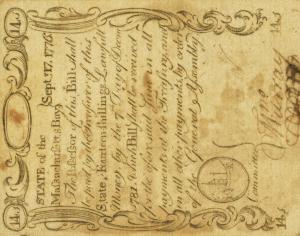 14s
14s
STATE of the
Massachusetts Bay. Sept. 17, 1776.
The Possessor of this Bill shall
be paid by the Treasurer of this
State, Fourteen shillings Lawful
Money by the 7th Day of Decm
1781. Which Bill shall be received
for the aforesaid Sum in all
payments at the Treasury, and
in all other payments by order
of the General Assembly.
Committee
14s
14s